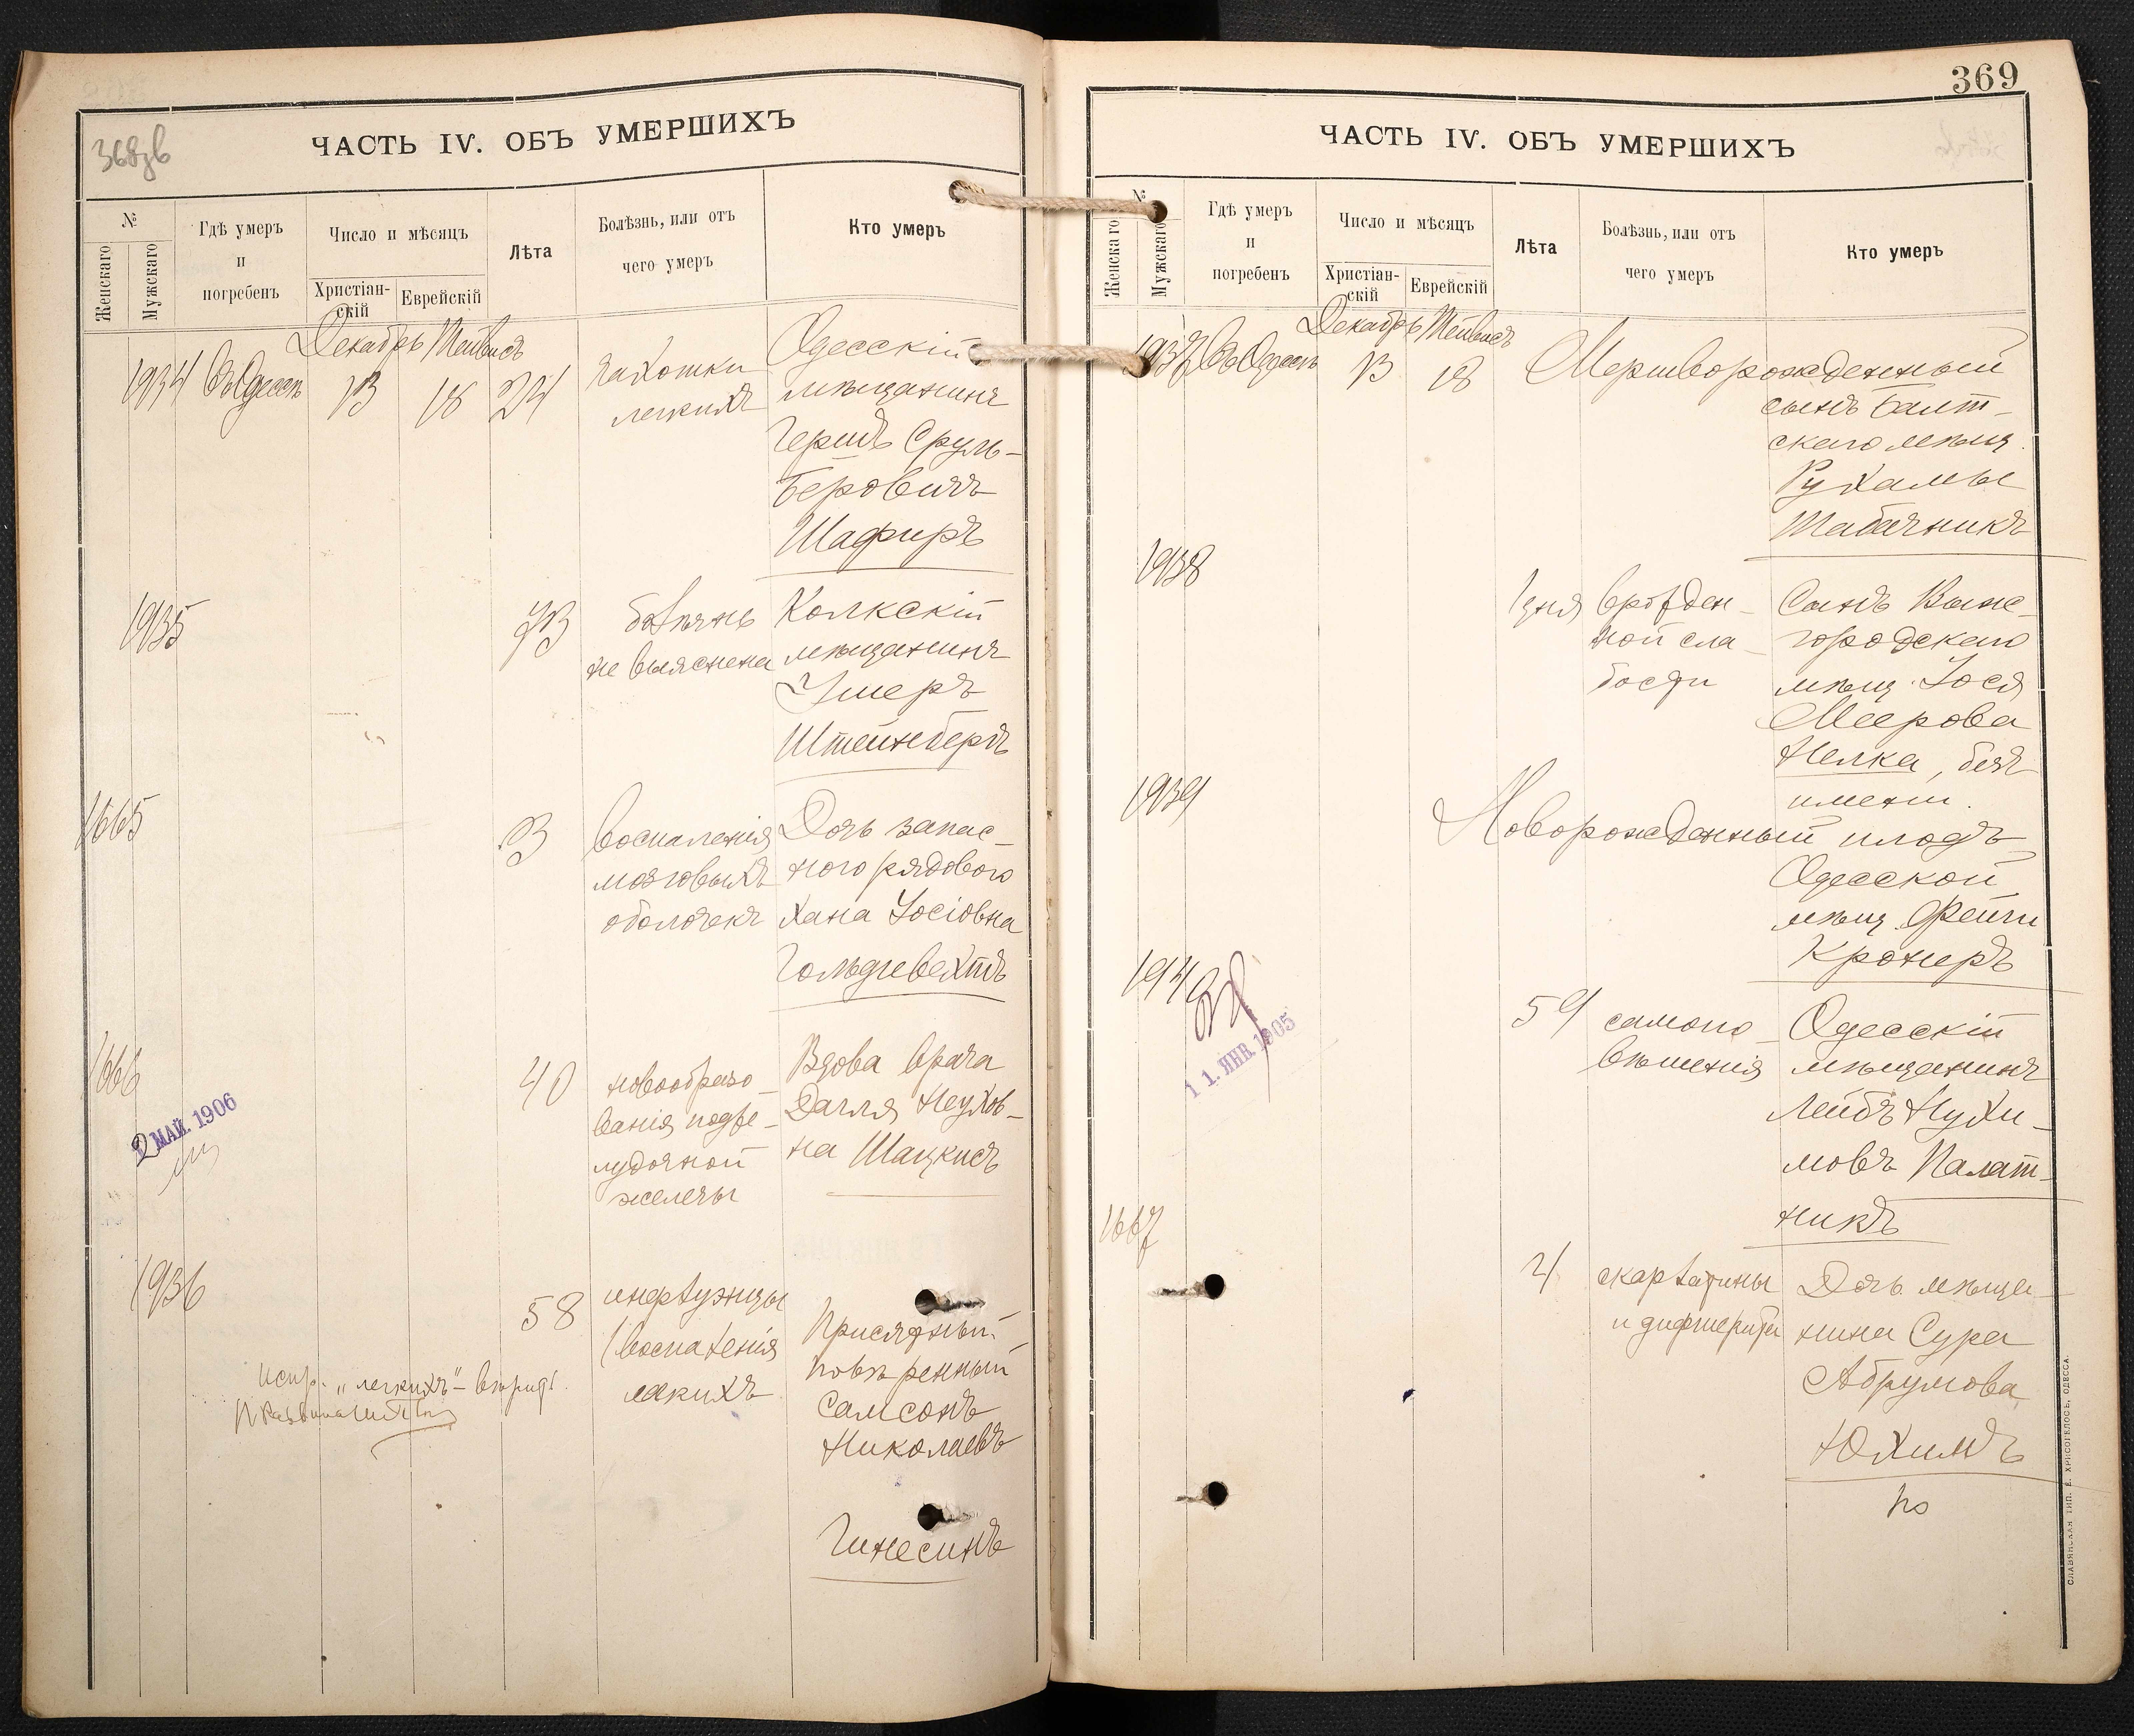 368зв
ЧАСТЬ IV. ОБЪ УМЕРШИХЪ
№
Женскаго
Мужскаго
Гдѣ умеръ
и
погребенъ
Число и мѣсяцъ
Христіан-
скій
Еврейскій
Лѣта
Болѣзнь, или отъ
чего умеръ
Кто умеръ
Декабрь Тейвисъ
1934 Въ Одессѣ 13 18 24
чахотки
легкихъ
Одесскій
мѣщанинъ
Гершъ Сруль-
Беровичъ
Шафиръ
1935 73
болѣзнь
не выяснена
Колкскій
мѣщанинъ
Умеръ
Штейнбергъ
1665 3
воспаленія
мозговыхъ
оболочекъ
Дочь запас-
ного рядового
Хана Іосіовна
Гольдгевехтъ
1666 40
новообразо-
ванія подже-
лудочной
железы
Вдова врача
Неухов-
на Шацкисъ
2 МАЙ. 1906
1936 58
инфлуэнцы
(воспаленія
легкихъ
Присяжный
повѣренный
Самсонъ
Николаевъ
Гинесинъ
испр. „легкихъ"- вѣрить.
369
ЧАСТЬ IV. ОБЪ УМЕРШИХЪ
№
Женскаго
Мужскаго
Гдѣ умеръ
и
погребенъ
Число и мѣсяцъ
Христіан-
скій
Еврейскій
Лѣта
Болѣзнь, или отъ
чего умеръ
Кто умеръ
Декабрь Тейвисъ
1937 Въ Одессѣ 13 18
Мертворожденный
сынъ Балт-
скаго мѣщ.
Рухамы
Табачникъ
1938 1 дня
врожден-
ной сла-
бости
Сынъ Выше-
городскаго
мѣщ. Іося
Меерова
Нелка, безъ
имени.
1939
Новорожденный плодъ
Одесской
мѣщ. Фейги
Кронеръ
1940 59
самопо-
вѣшенія
Одесскій
мѣщанинъ
Лейбъ Нухи-
мовъ Палат-
никъ
1 1. ЯНВ. 1905
1667 4
скарлатины
и дифтерита
Дочь мѣща-
нина Сура
Абрумова
Юхимъ
СЛАВЯНСКАЯ ТИП. Е. ХРИСОГЕЛОСЪ, ОДЕССА.